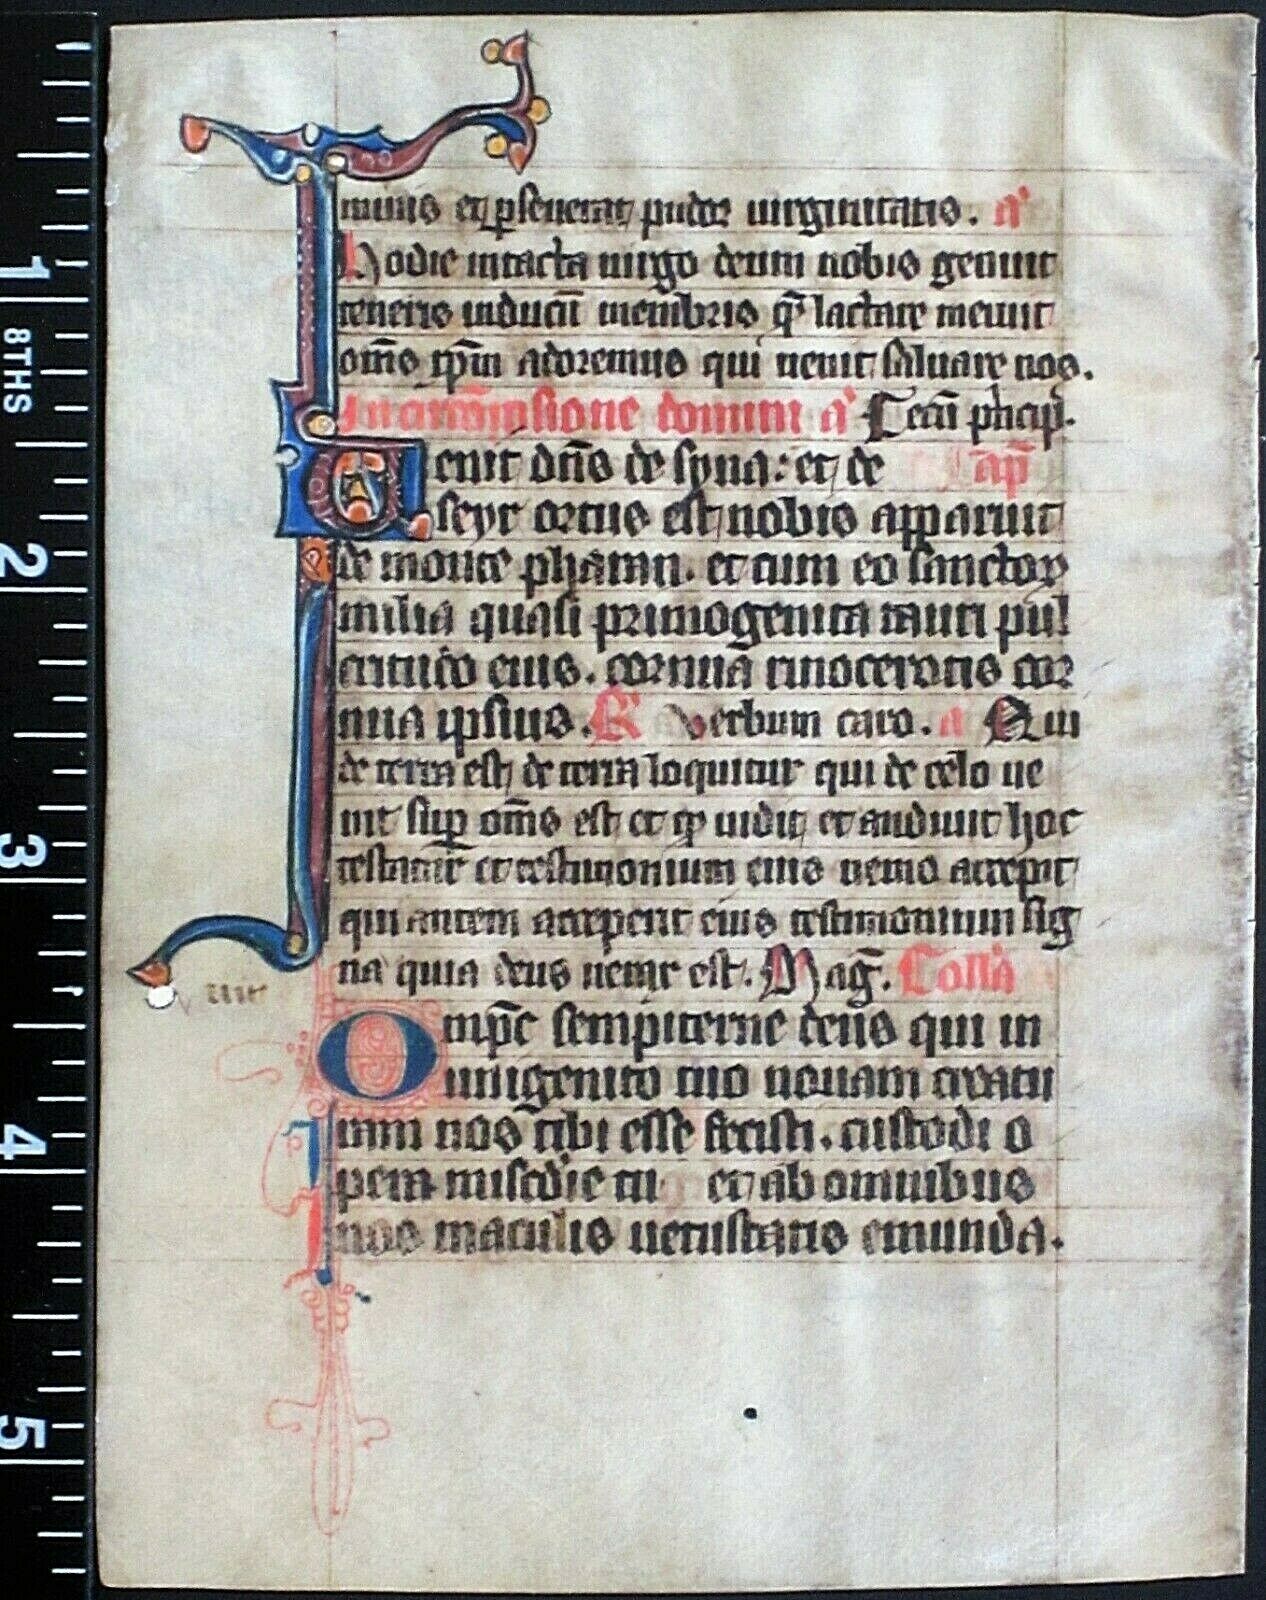 minus et p̱seuerat pudor uirginitatis. a̾
Hodie intacta uirgo deum nobis genuit
teneris indutū membris q̄ lactare meruit
om̄s xp̄m adoremus qui uenit saluare nos.
In circūcisione domini a̾ Tecū p̾ncip̱.
Uenit dn̄s de syna: et de cap̄
seyr ortus est nobis apparuit
de monte pharan. et cum eo sanctoꝝ
milia quasi primogenita tauri pul
critudo eius. cornua rinocerotis cor
nua ipsius. R̾ Verbum caro. a Qui
de terra est de terra loquitur qui de celo ue
nit sup̱ om̄s est et qḏ uidit et audiuit hoc
testatur̄ et testimonium eius nemo accepit
qui autem acceperit eius testimonium sig
na quia deus uerax est. Maḡ. Coll̾a
uenit
Omp̄c sempiterne deus qui in
unigenito tuo nouam creatu
ram nos tibi esse fecisti. custodi o
pera misc̄die tu et ab omnibus
nos maculis uetustatis emunda.
1
8THS
2
3
4
5